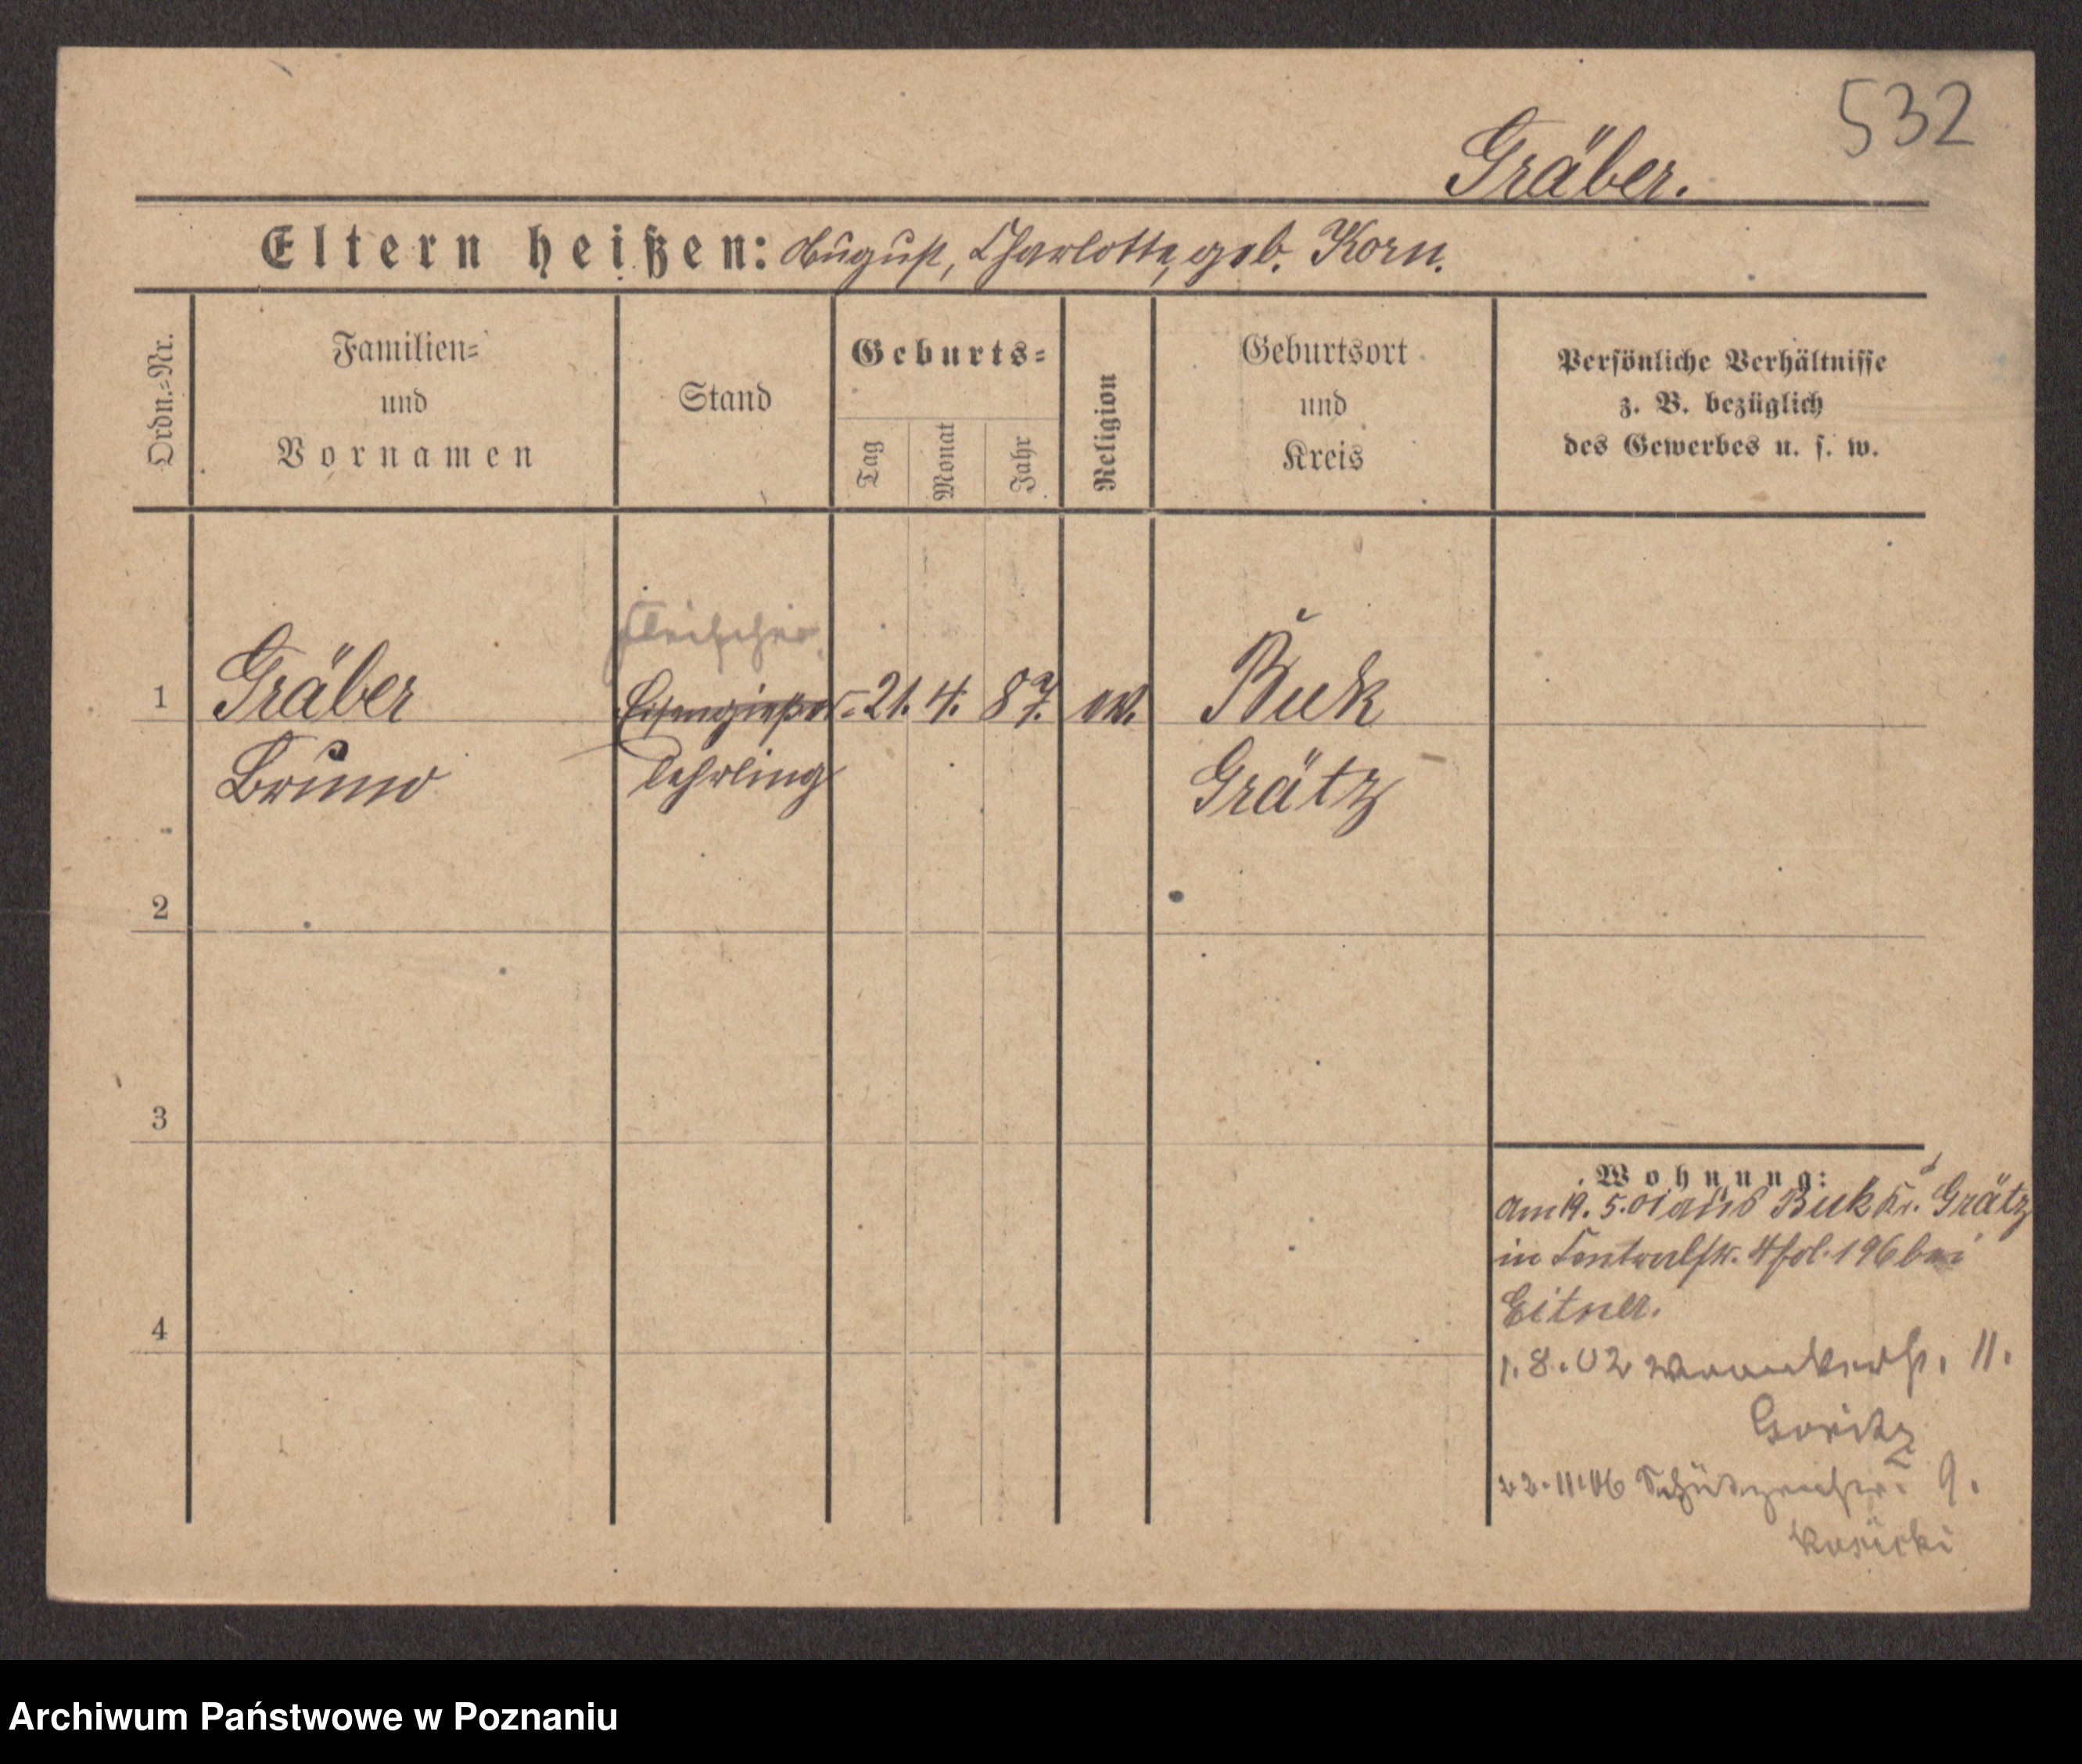 532
Gräber.
Eltern heißen: August, Charlotte, geb. Korn.
Ordn.=Nr.
Familien=
und
Vornamen
Stand
Geburts=
Tag
Monat
Jahr
Religion
Geburtsort
und
Kreis
Persönliche Verhältnisse
z. B. bezüglich
des Gewerbes u. s. w.
Fleischer
1 Gräber Eisengießer= 21. 4. 87. ev. Buk
Bruno Lehrling Grätz
2
3
4
Wohnung:
am 19. 5. 01 aus Buk Kr. Grätz
in 4 fol. 196 bei
Eitner.
1. 8. 02 11.
22. 11. 06 Schützenstr. 9.
Archiwum Państwowe w Poznaniu